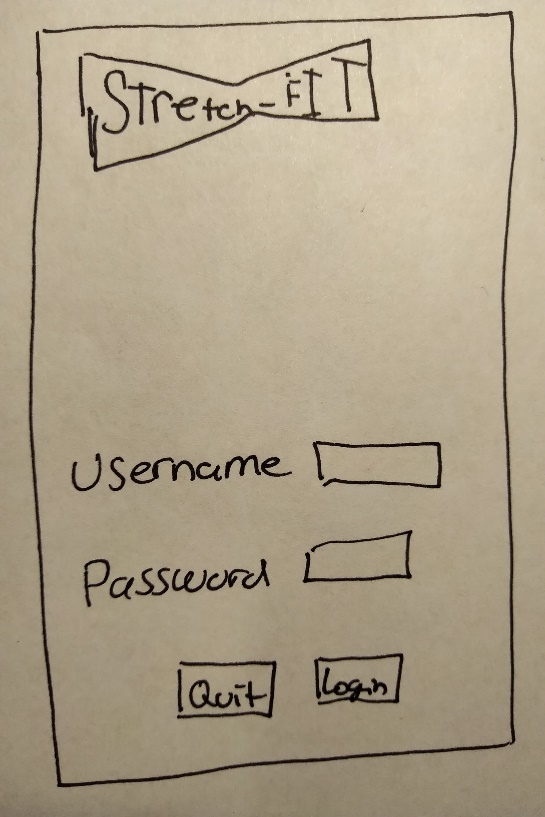 Stretch-FIT
Username
Password
Quit Login